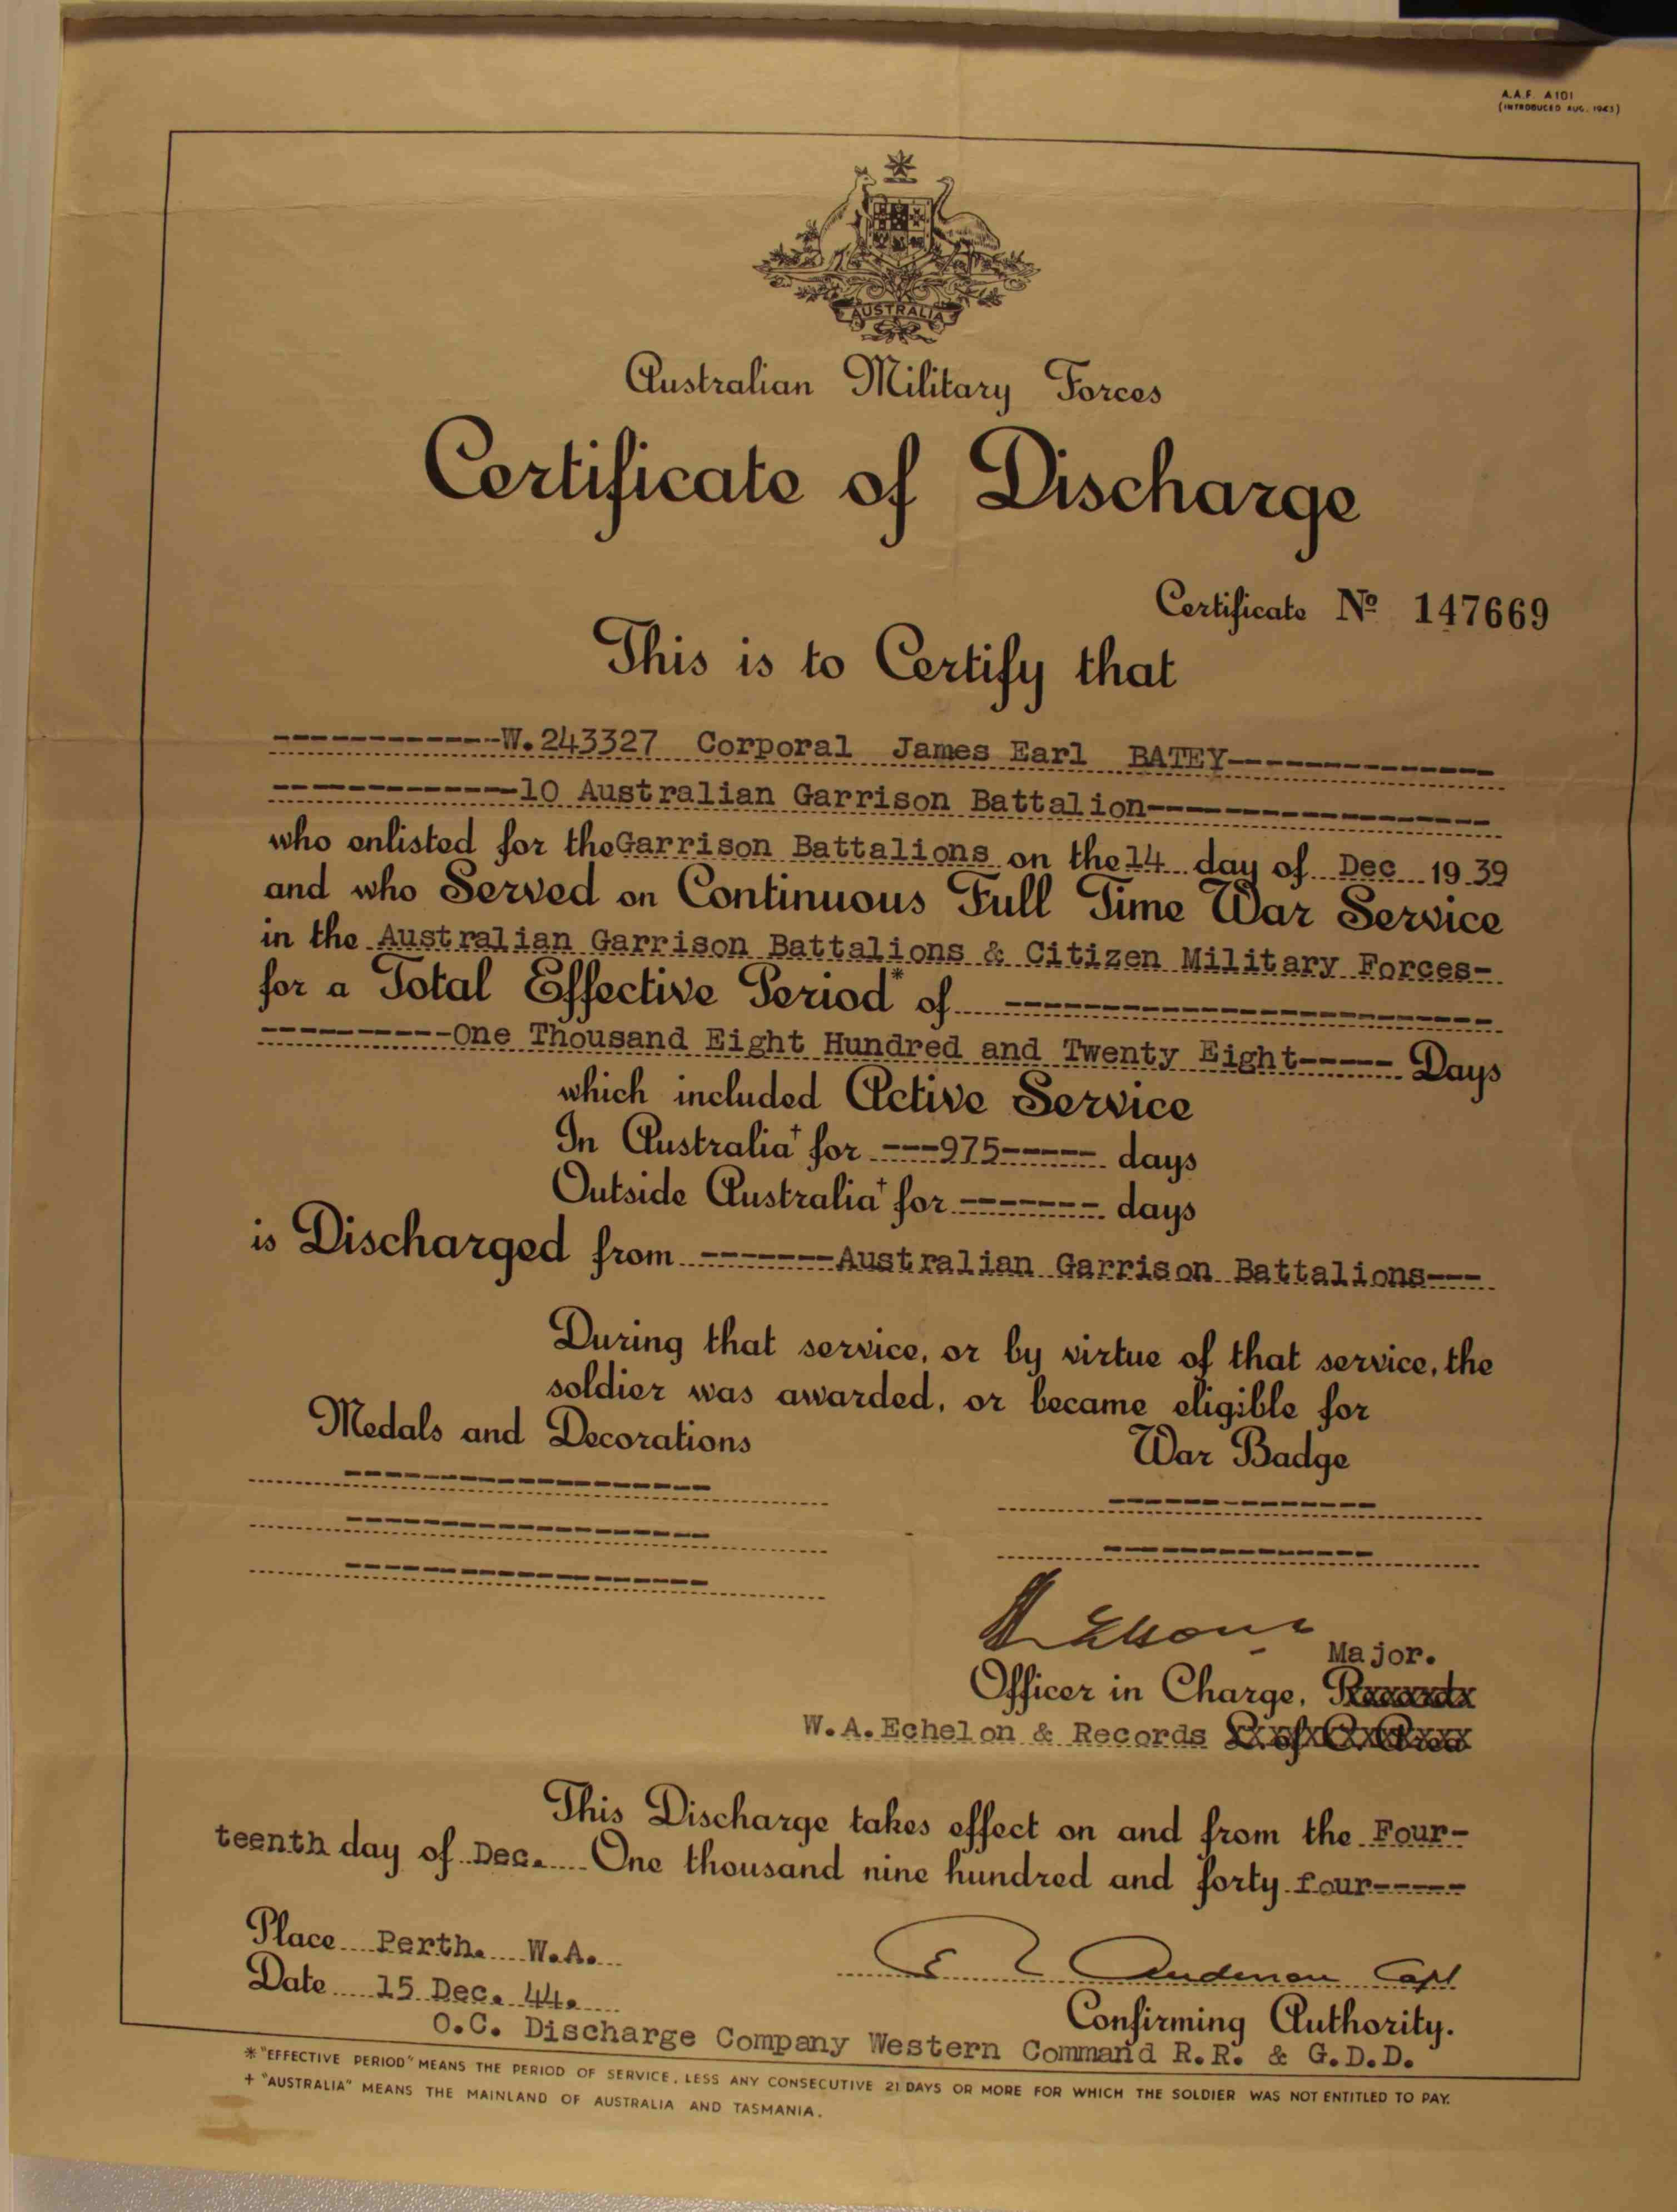 A.A.F. A101
(INTRODUCED AUG. 1943)
AUSTRALIA
Australian Military Forces
Certificate of Discharge
Certificate No 147669
This is to Certify that
------------W.243327 Corporal James Earl BATEY--------------
-------------10 Australian Garrison Battalion------------------
who enlisted for the Garrison Battalions on the 14 day of Dec 19 39
and who Served on Continuous Full Time War Service
in the Australian Garrison Battalions & Citizen Military Forces-
for a Total Effective Period* of --------------------------
----------One Thousand Eight Hundred and Twenty Eight----- Days
which included Active Service
In Australia+ for ---975----- days
Outside Australia+ for ------- days
is Discharged from -------Australian Garrison Battalions---
During that service, or by virtue of that service, the
soldier was awarded, or became eligible for
Medals and Decorations
War Badge
Major.
Officer in Charge, Records
W.A.Echelon & Records L. of C. Area
This Discharge takes effect on and from the Four-
teenth day of Dec. One thousand nine hundred and forty four-----
Place Perth. W.A.
Date 15 Dec. 44.
Anderson Capt
Confirming Authority.
O.C. Discharge Company Western Command R.R. & G.D.D.
* "EFFECTIVE PERIOD" MEANS THE PERIOD OF SERVICE, LESS ANY CONSECUTIVE 21 DAYS OR MORE FOR WHICH THE SOLDIER WAS NOT ENTITLED TO PAY.
+ "AUSTRALIA" MEANS THE MAINLAND OF AUSTRALIA AND TASMANIA.